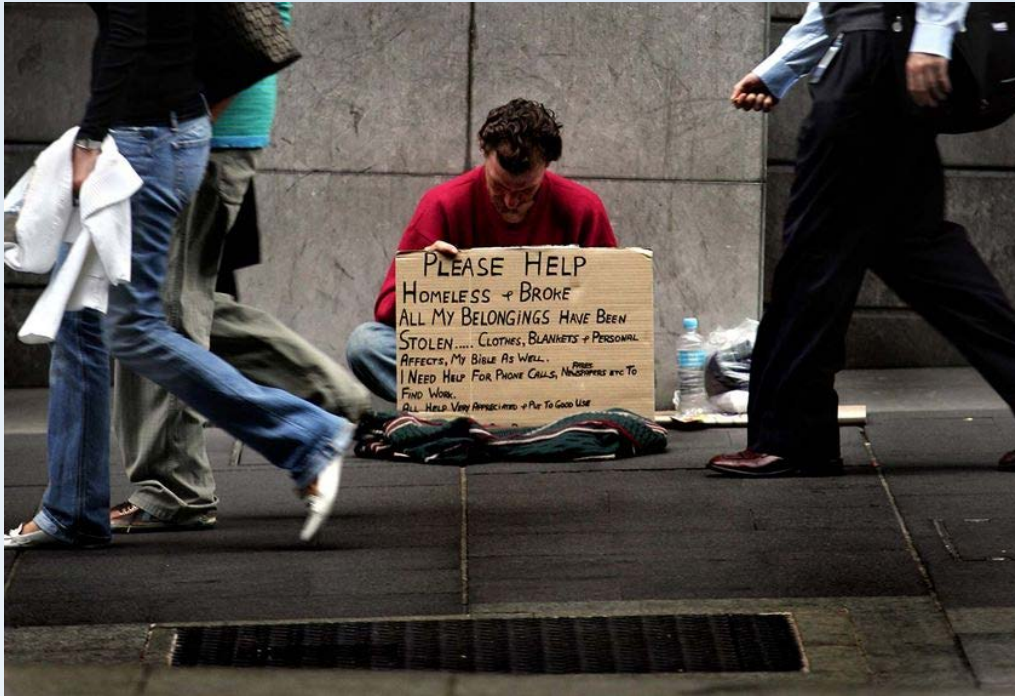 PLEASE HELP
HOMELESS + BROKE
ALL MY BELONGINGS HAVE BEEN
STOLEN..... CLOTHES, BLANKETS + PERSONAL
AFFECTS, MY BIBLE AS WELL.
I NEED HELP FOR PHONE CALLS, FARES NEWSPAPERS ETC TO
FIND WORK.
ALL HELP VERY APPRECIATED + PUT TO GOOD USE